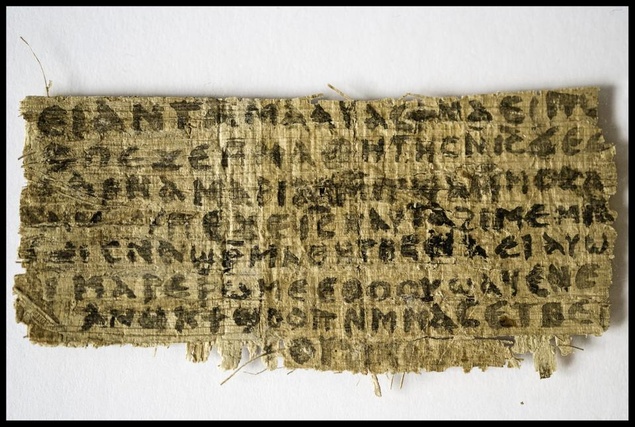 ⲉⲓ ⲁⲛ ⲧⲁⲙⲁⲁⲩ ⲁⲥϯ ⲛⲁⲉⲓ ⲡⲱ
ⲡⲉϫⲉ ⲙⲙⲁⲑⲏⲧⲏⲥ ⲛⲓⲥ ϫⲉ ⲥ
ⲁⲣⲛⲁ ⲙⲁⲣⲓⲁⲙ ⲙⲡϣⲁ ⲙⲙⲟⲥ ⲁ
ⲡⲉϫⲉ ⲓⲥ ⲛⲁⲩ ⲧⲁϩⲓⲙⲉ ⲙⲛ
ⲥⲛⲁϣ ⲣⲙⲁⲑⲏⲧⲏⲥ ⲛⲁⲉⲓ ⲁⲩⲱ
ⲙⲁⲣⲉⲣⲱⲙⲉ ⲉⲑⲟⲟⲩ ϣⲁϥⲉ ⲛⲉ
ⲁⲛⲟⲕ ϯϣⲟⲟⲡ ⲛⲙⲙⲁⲥ ⲉⲧⲃⲉ